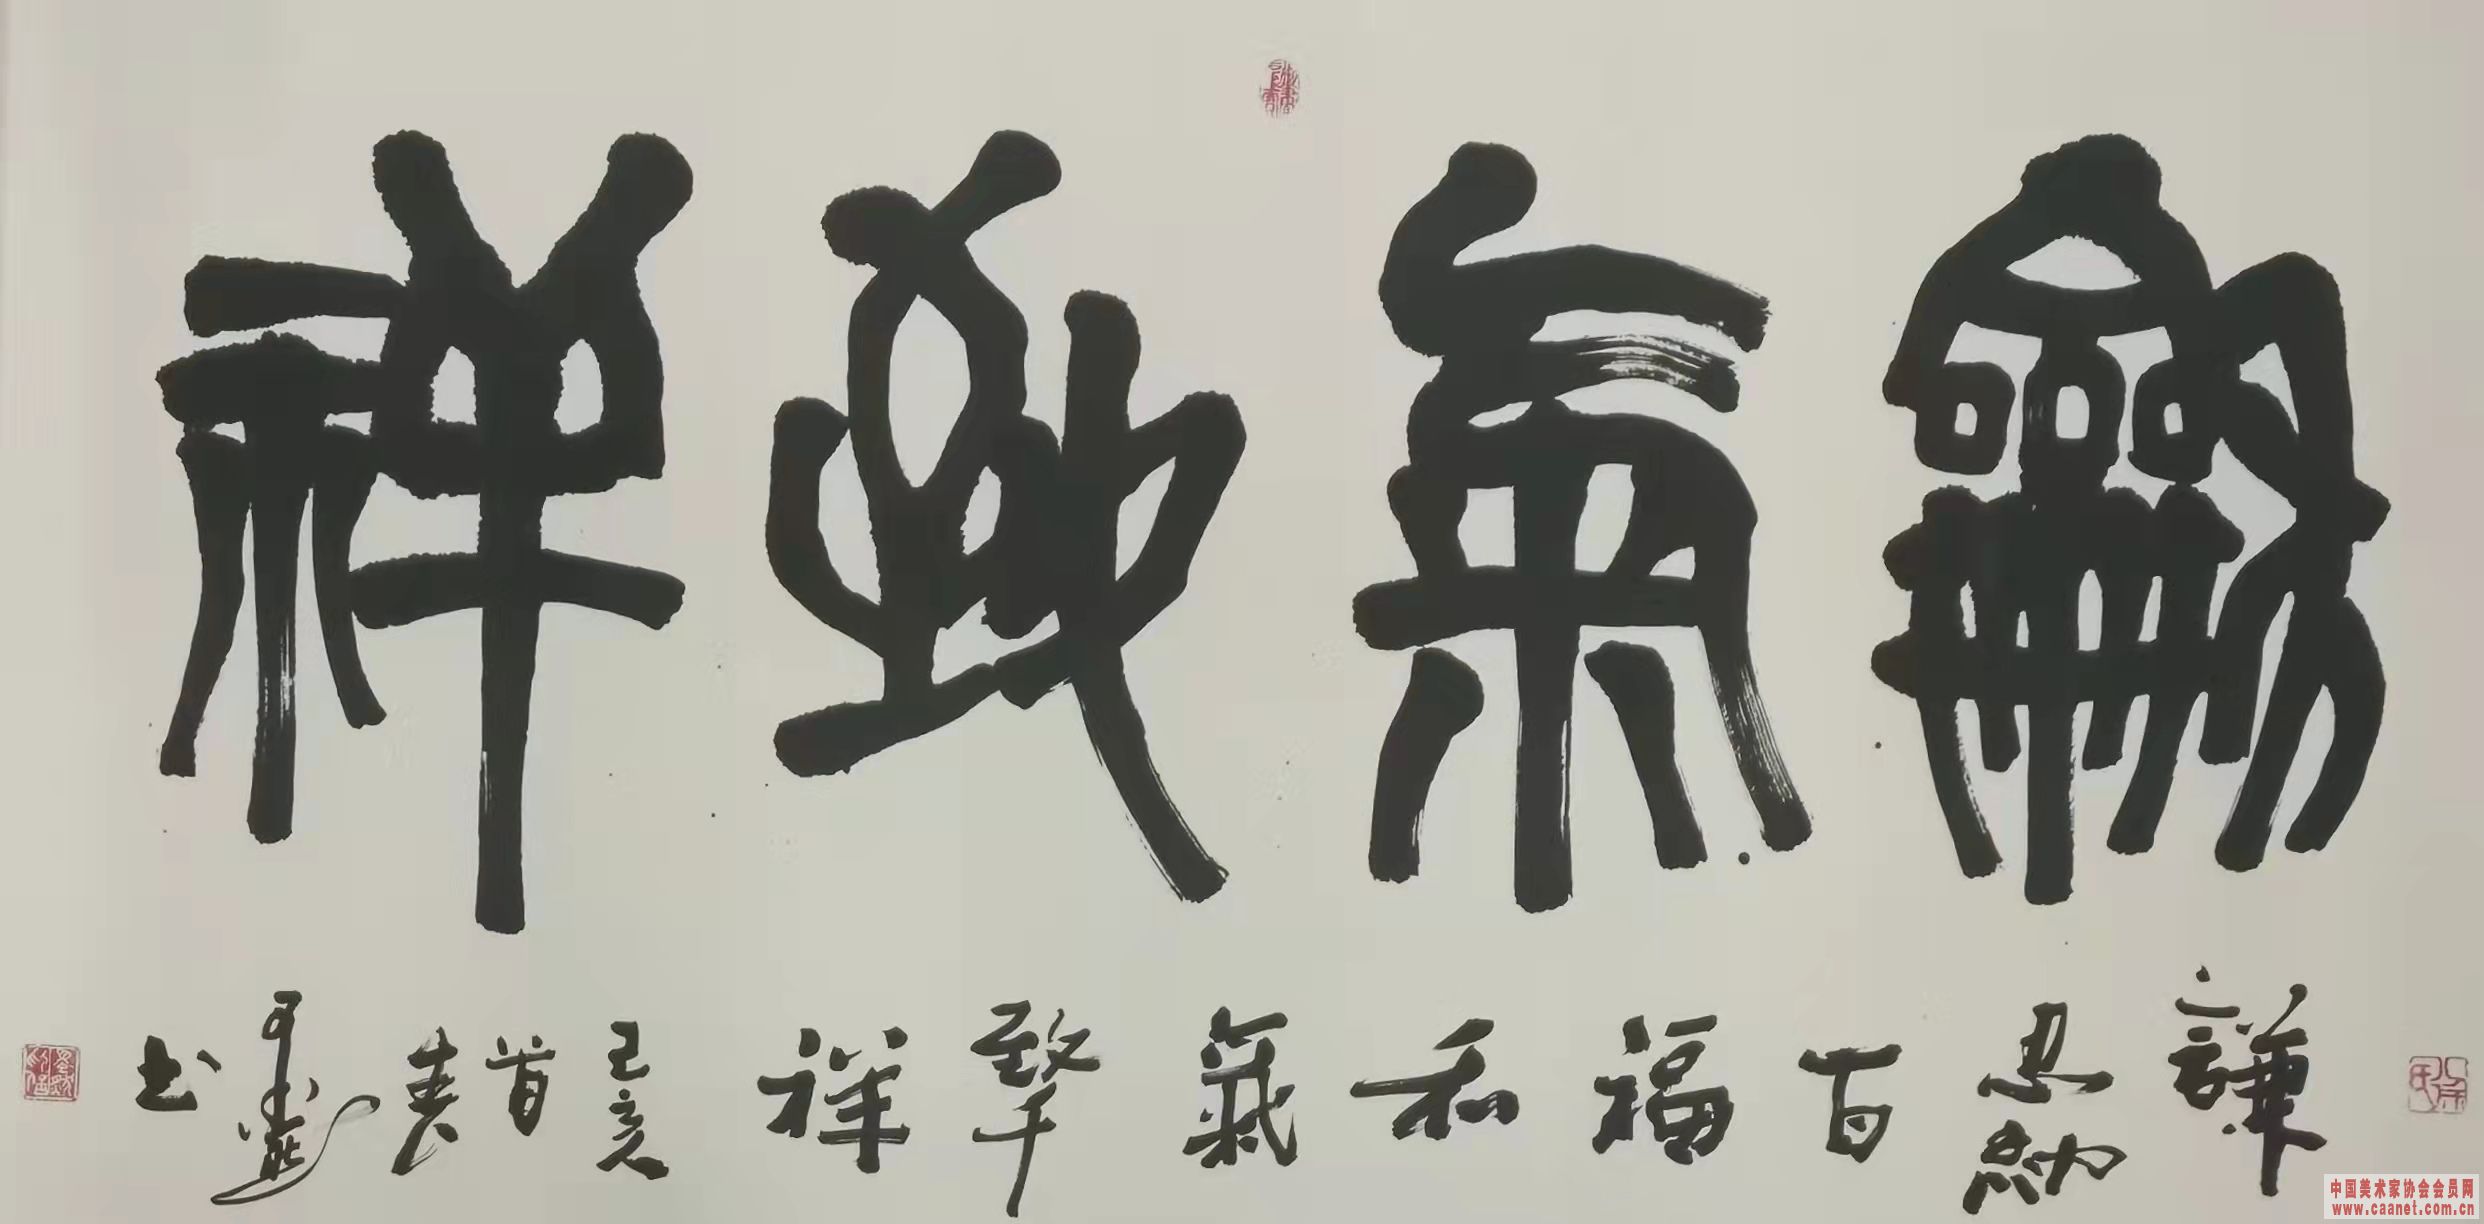 龢氣致祥
謙忍納百福和氣致千祥己亥首春书
中国美术家协会会员网
www.caanet.com.cn